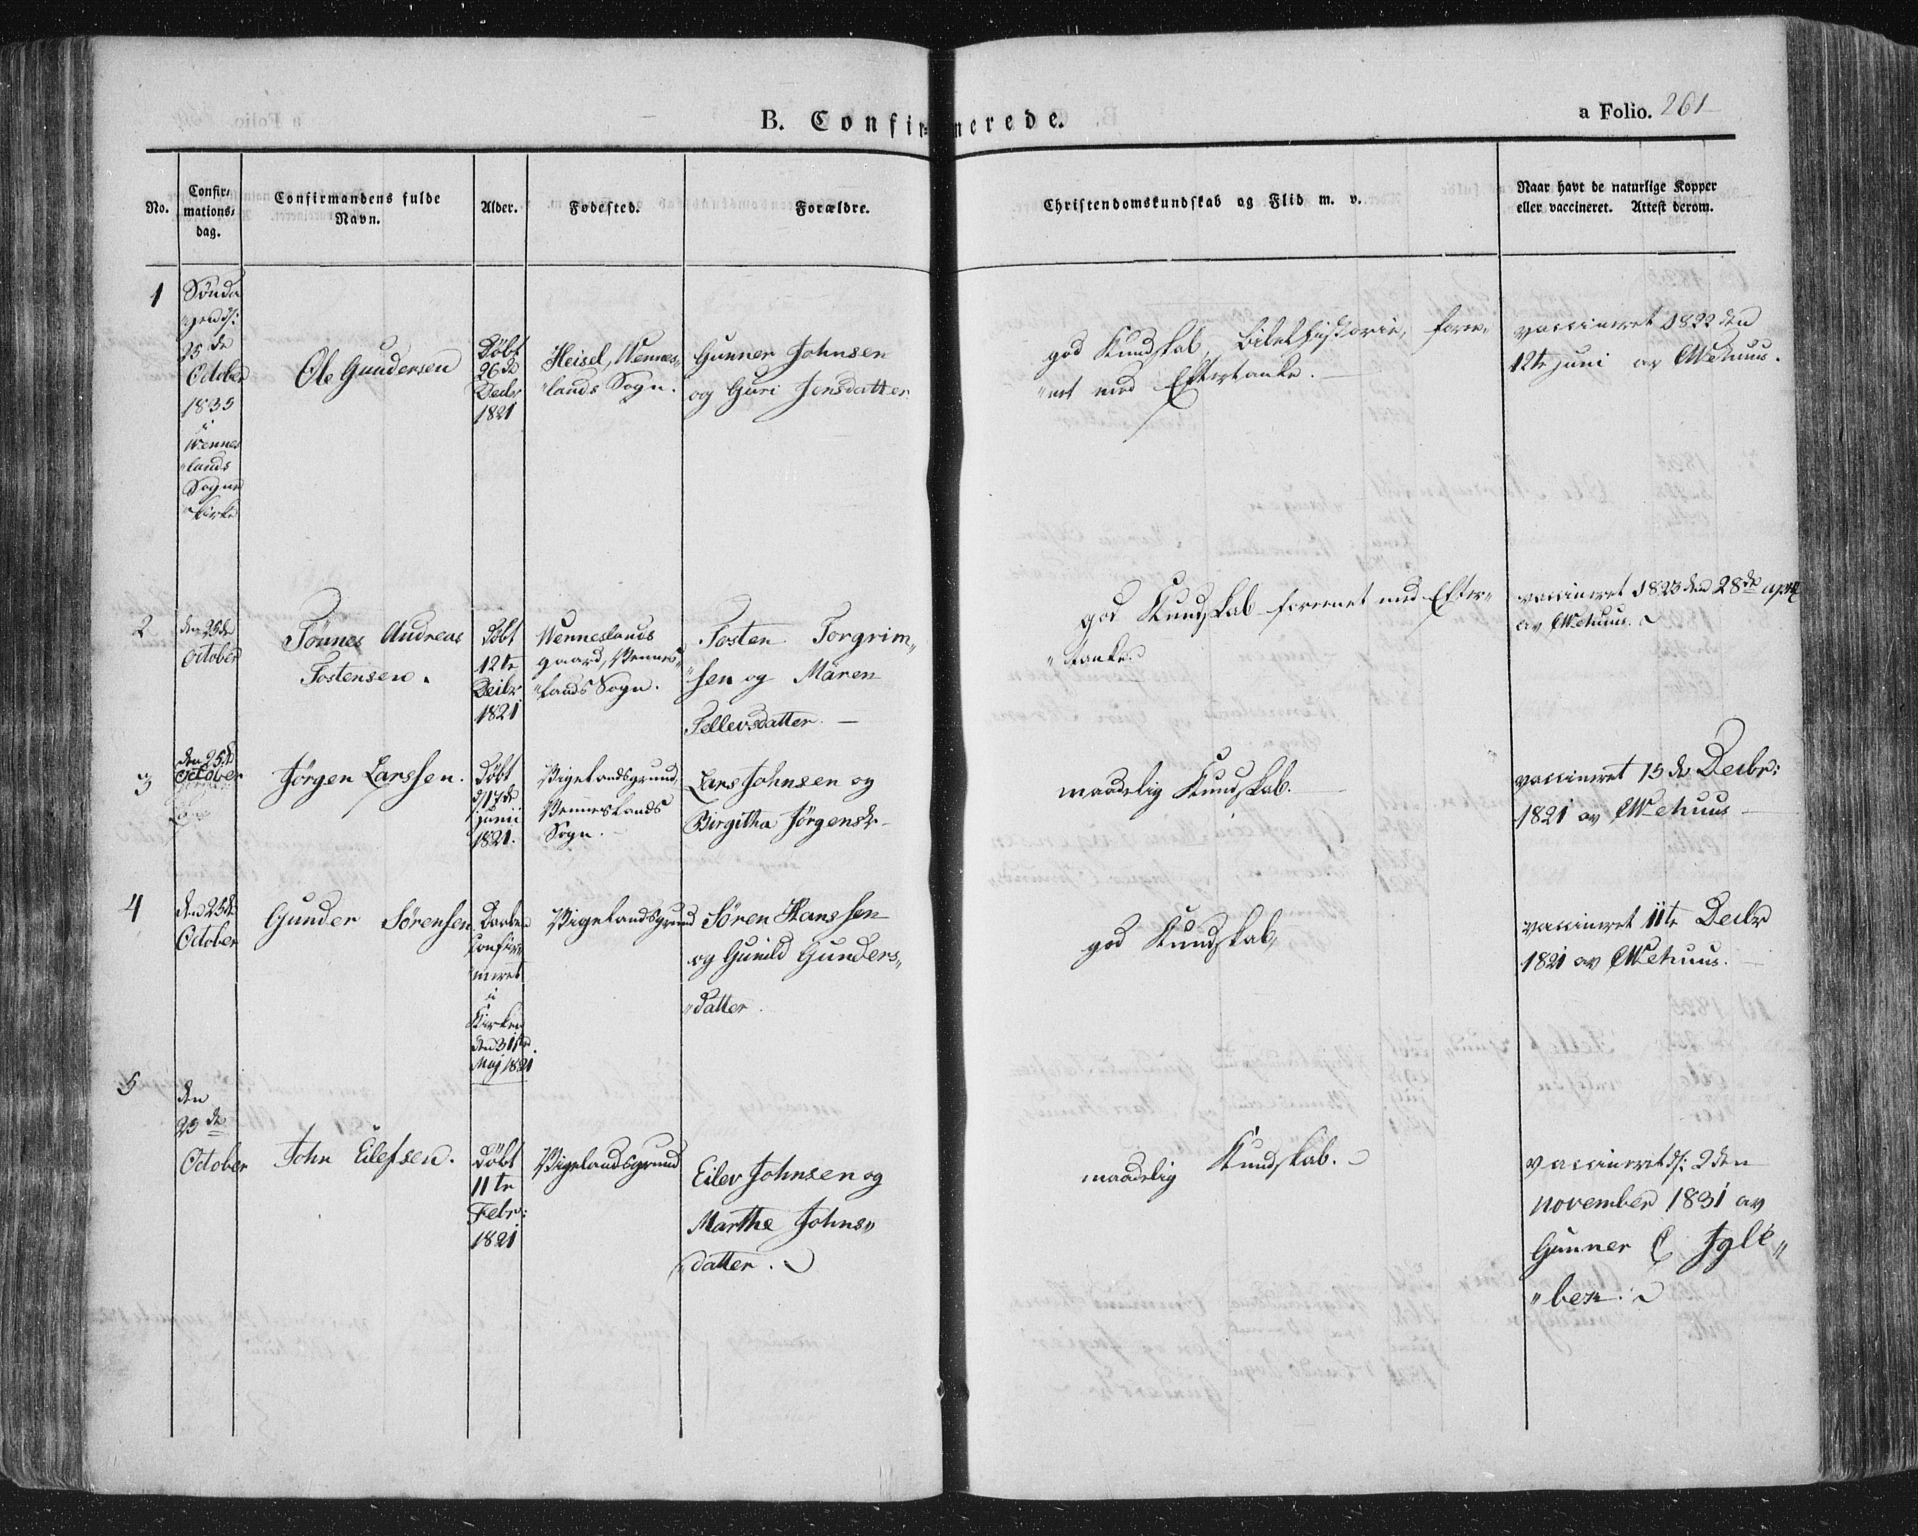 B. Confirmerede.
a Folio. 261
No.
Confir-
mations-
dag.
Confirmandens fulde
Navn.
Alder.
Fødested.
Forældre.
Christendomskundskab og Flid m. v.
Naar havt de naturlige Kopper
eller vaccineret. Attest derom.
1
Sønda
"gen d:
25de
October
1835
i
Wennes
"lands
Sogne
"kirke
Ole Gundersen
Døbt
26de
Decbr
1821
Heisel, Wennes,,
"lands Sogn.
Gunner Johnsen
og Guri Jensdatter
god Kundskab, Bibelhistorie, foree,,
"net med Eftertanke.
vaccineret 1822 den
12te juni av Wehuus.
2
den 25de
October
Tønnes Andreas
Tostensen.
Døbt
12te
Decbr
1821
Wenneslands
gaard, Vennes,,
"lands Sogn.
Tosten Torgrim,,
"sen og Maren
Tellevsdatter. —
god Kundskab forenet med Efter,,
"tanke.
vaccineret 1823 den 28de april
av Wehuus.
3
den 25de
October
Jørgen Larssen.
Døbt
d/17de
junii
1821.
Vigelandsgrund,
Venneslands
Sogn.
Lars Johnsen og
Birgitha Jørgensdr
maadelig Kundskab.
vaccineret 15de Decbr:
1821 av Wehuus
4
den 25de
October
Gunder Sørensen
Daaben
confir,,
"meret
i
Kirken
den 31te
Maj 1821
Vigelandsgrund
Søren Hanssen
og Gunild Gunders,,
"datter.
god Kundskab,
vaccineret 11te Decbr
1821 av Wehuus.
5
den
25de
October
John Eilefsen.
Døbt
11te
Febr:
1821
Vigelandsgrund
Eilev Johnsen og
Marthe Johns,,
"datter.
maadelig Kundskab.
vaccineret d: 2den
november 1831 av
Gunner C Jgle,,
"ber.